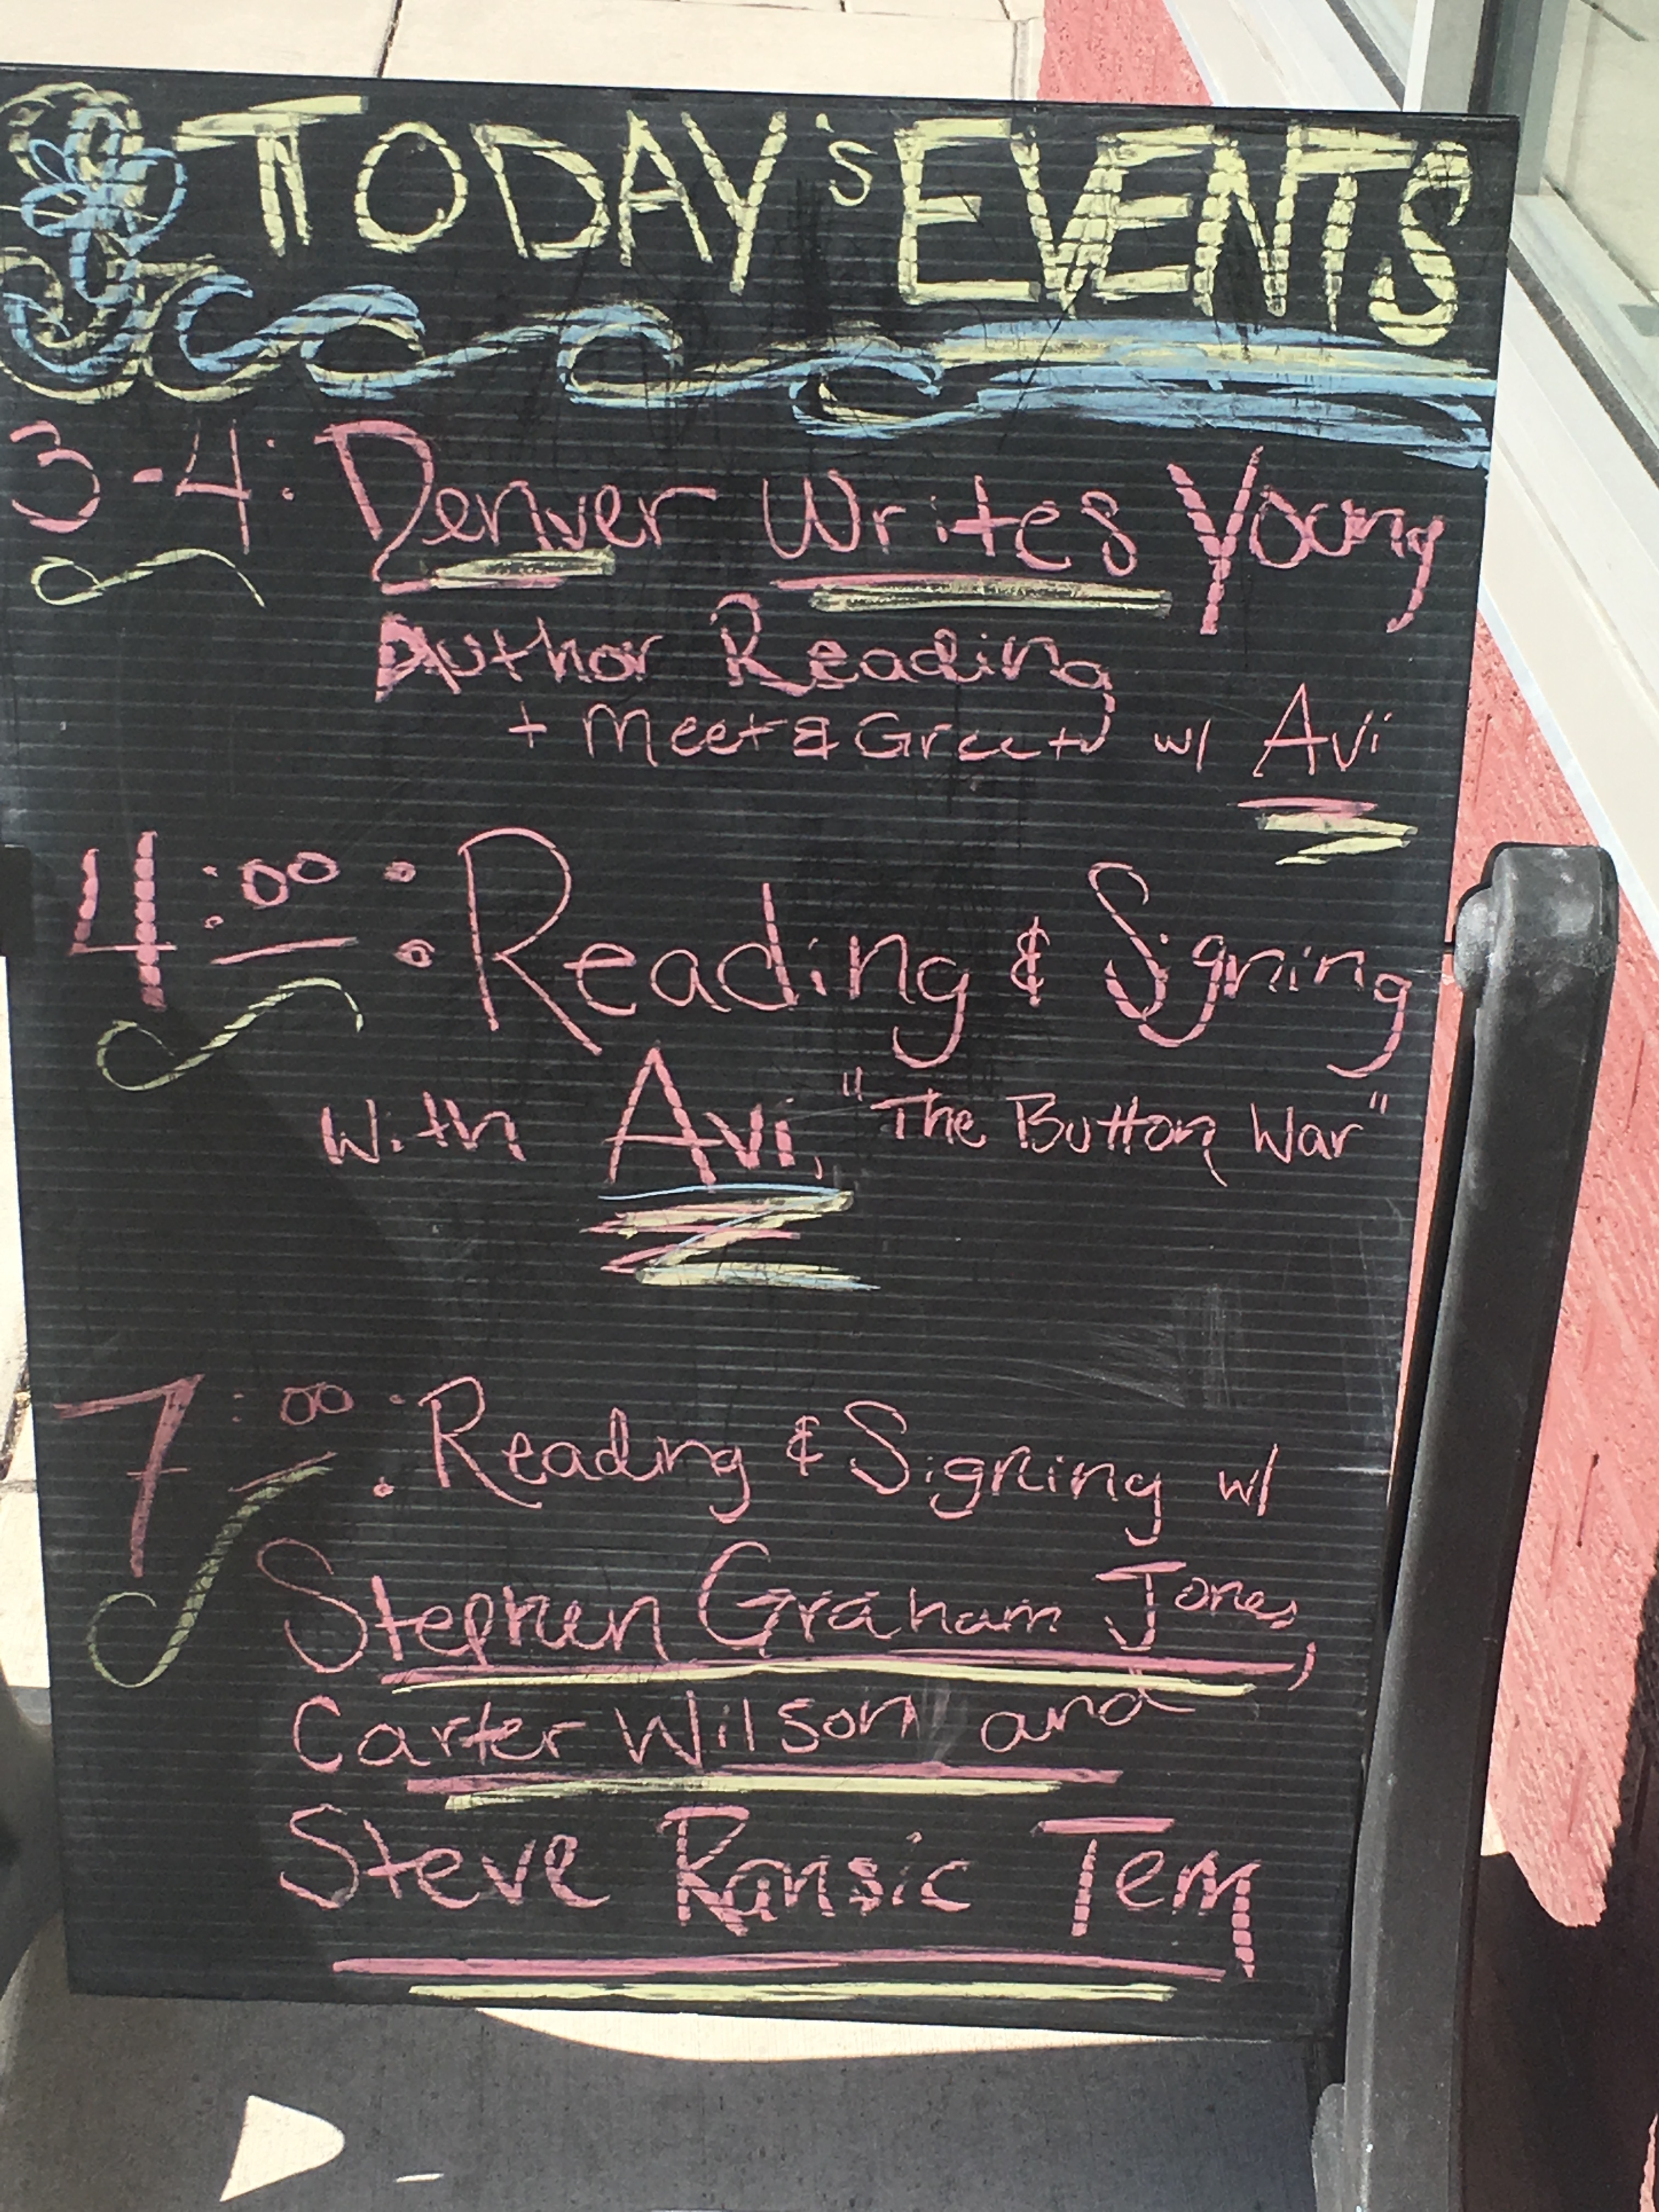 TODAY's EVENTS
3-4: Denver Writes Young
Author Reading
+ Meet & Greet w/ Avi
4:00: Reading & Signing
with Avi, "The Button War"
7:00: Reading & Signing w/
Stephen Graham Jones,
Carter Wilson and
Steve Ransic Tem